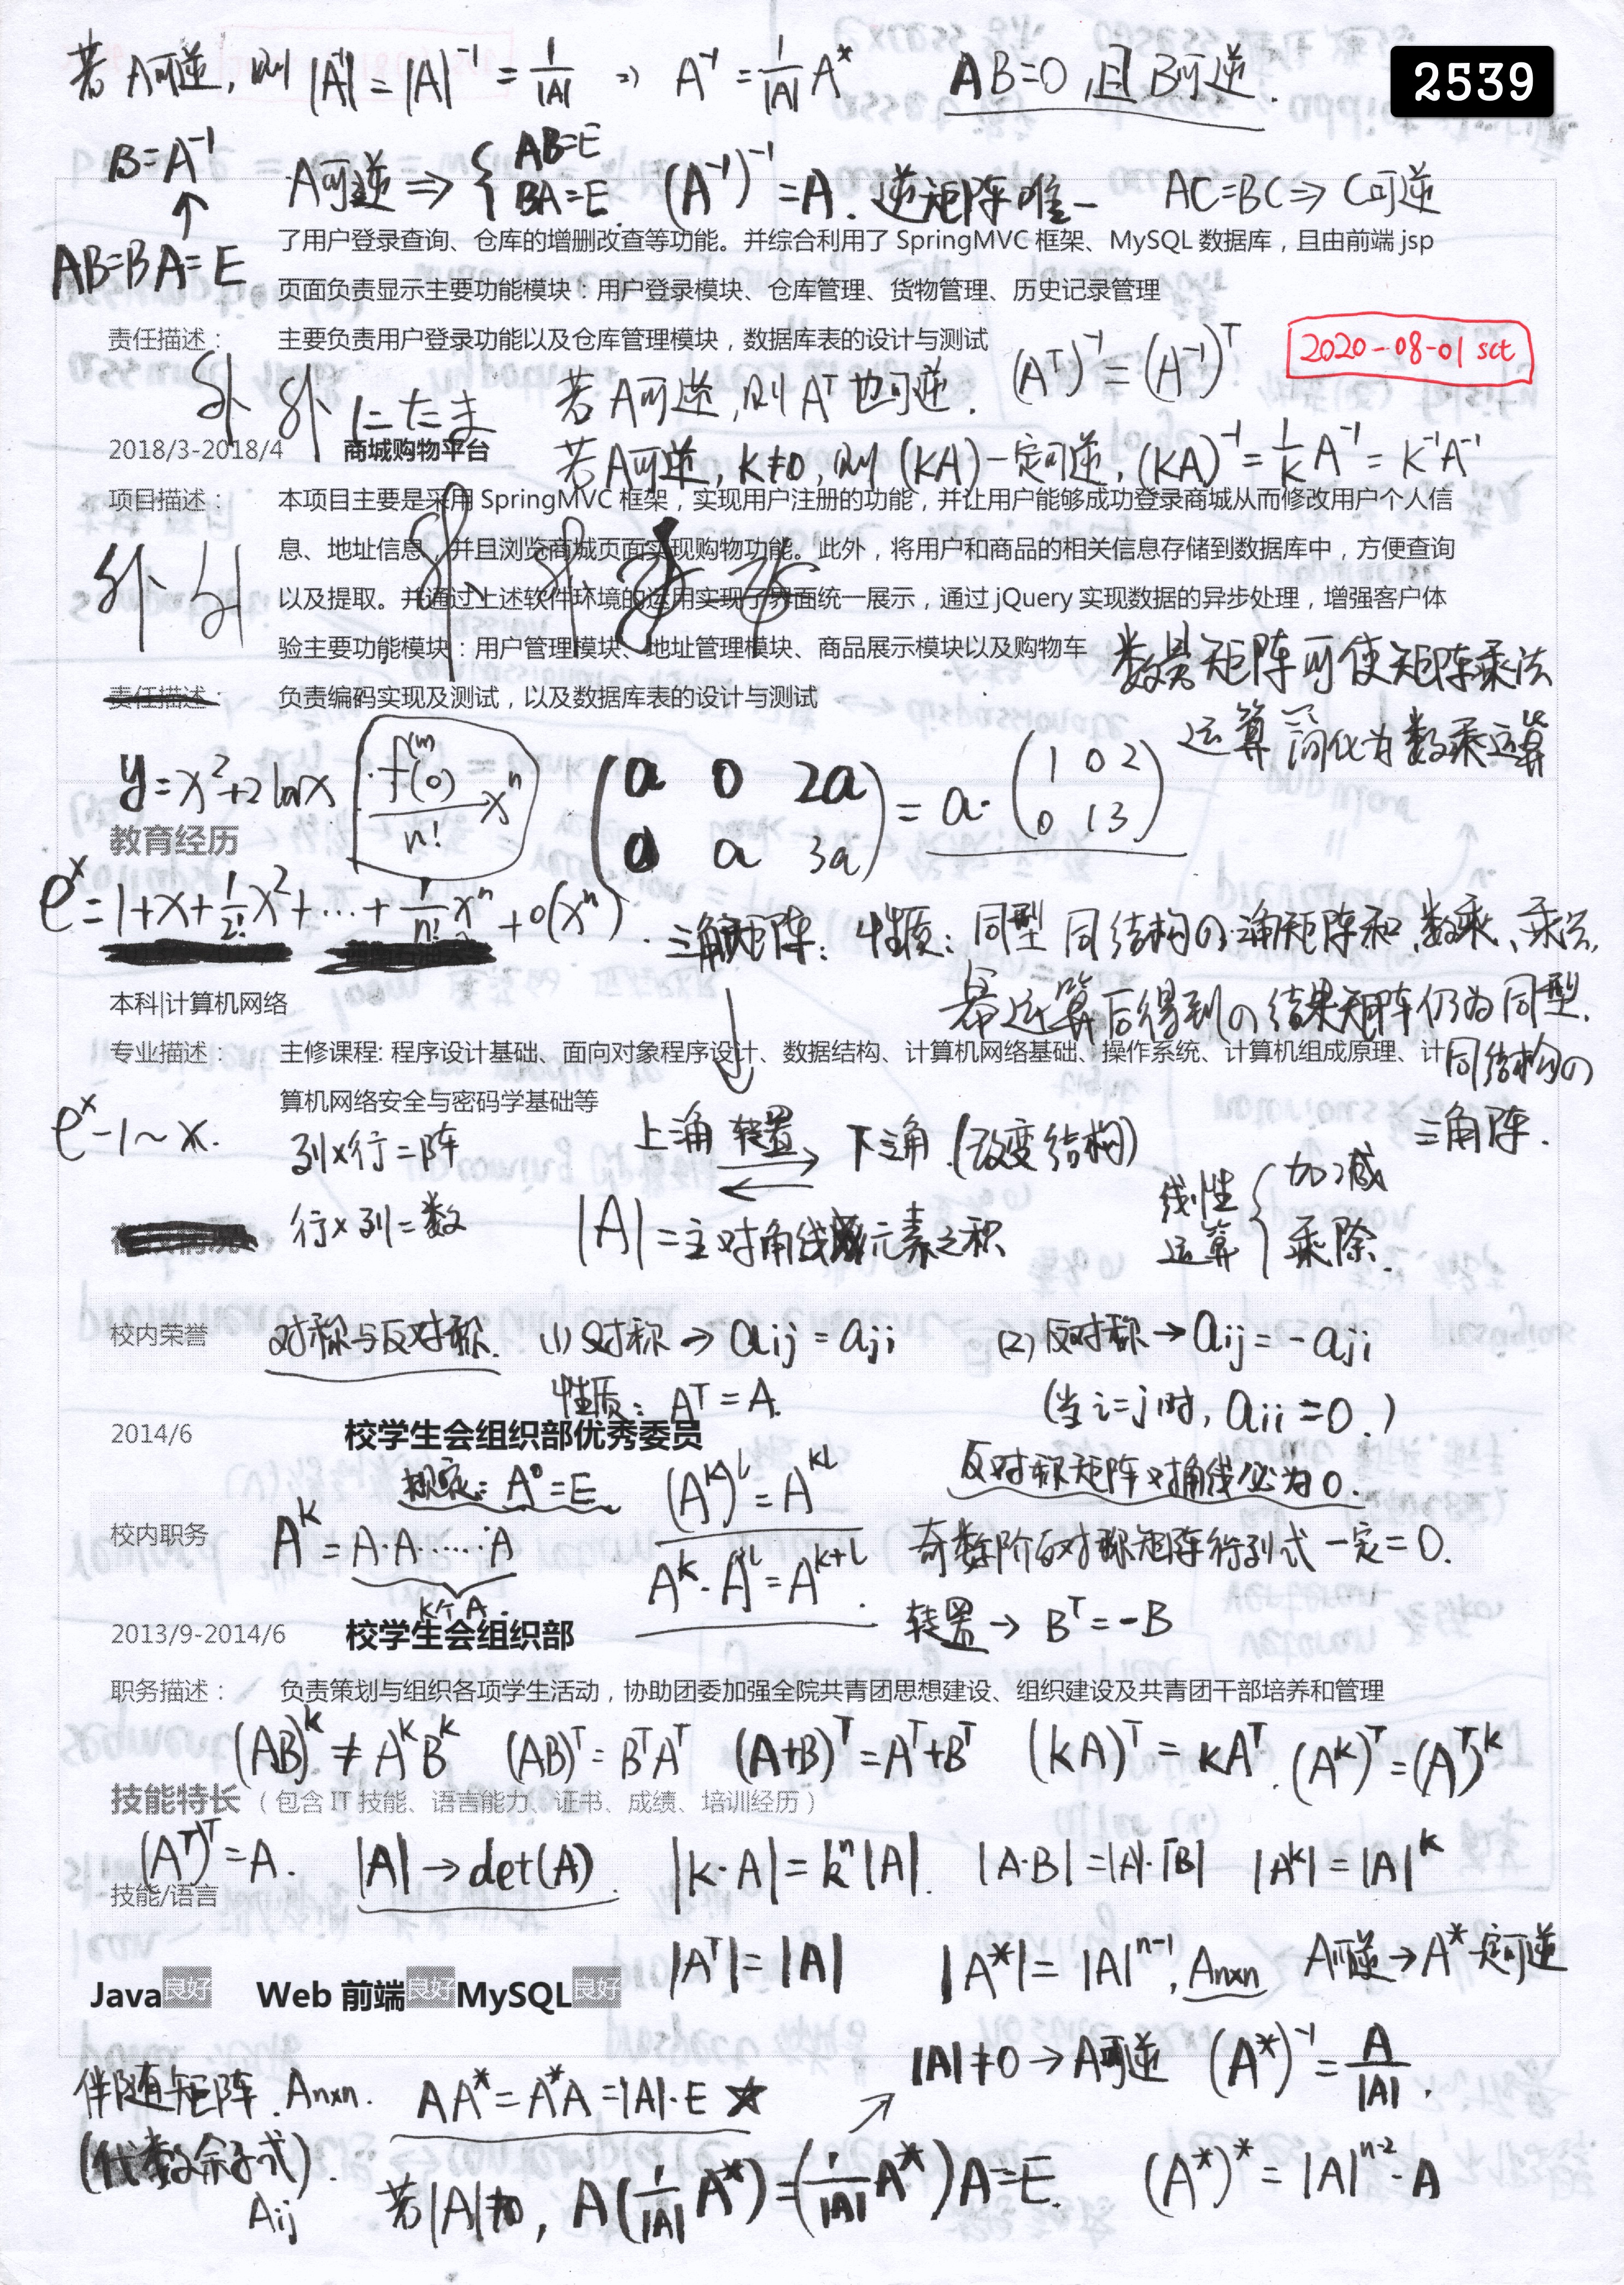 若A可逆,则|A⁻¹|=|A|⁻¹=1/|A| ⇒ A⁻¹=1/|A| A* AB=0,且B可逆.
2539
B=A⁻¹
A可逆⇒{AB=E BA=E. (A⁻¹)⁻¹=A. 逆矩阵唯一 AC=BC⇒C可逆
AB=BA=E
了用户登录查询、仓库的增删改查等功能。并综合利用了SpringMVC框架、MySQL数据库，且由前端jsp
页面负责显示主要功能模块：用户登录模块、仓库管理、货物管理、历史记录管理
责任描述： 主要负责用户登录功能以及仓库管理模块，数据库表的设计与测试
2020-08-01 sct
若A可逆,则Aᵀ也可逆. (Aᵀ)⁻¹=(A⁻¹)ᵀ
外 外 に た ま
2018/3-2018/4 商城购物平台
若A可逆,K≠0,则(KA)一定可逆,(KA)⁻¹=1/K A⁻¹=K⁻¹A⁻¹
项目描述： 本项目主要是采用SpringMVC框架，实现用户注册的功能，并让用户能够成功登录商城从而修改用户个人信
息、地址信息，并且浏览商城页面实现购物功能。此外，将用户和商品的相关信息存储到数据库中，方便查询
以及提取。并通过上述软件环境的运用实现了界面统一展示，通过jQuery实现数据的异步处理，增强客户体
外
验主要功能模块：用户管理模块、地址管理模块、商品展示模块以及购物车
数量矩阵可使矩阵乘法
责任描述： 负责编码实现及测试，以及数据库表的设计与测试
运算简化为数乘运算
y=x²+2lnx f⁽ⁿ⁾(0)/n! xⁿ (a 0 2a; 0 a 3a)=a·(1 0 2; 0 1 3)
教育经历
eˣ=1+x+1/2! x²+…+1/n! xⁿ+o(xⁿ).
三角矩阵: 性质: 同型同结构の三角矩阵和、数乘、乘法,
幂运算后得到の结果矩阵仍为同型.
同结构の
三角阵.
本科|计算机网络
专业描述： 主修课程: 程序设计基础、面向对象程序设计、数据结构、计算机网络基础、操作系统、计算机组成原理、计
算机网络安全与密码学基础等
eˣ-1~x. 列×行=阵 上三角 转置 下三角.(改变结构)
行×列=数 |A|=主对角线元素之积 线性运算{加减 乘除.
校内荣誉
对称与反对称. (1)对称→aij=aji (2)反对称→aij=-aji
性质: Aᵀ=A. (当i=j时,aii=0.)
2014/6 校学生会组织部优秀委员
规定: A⁰=E (Aᴷ)ᴸ=Aᴷᴸ 反对称矩阵对角线必为0.
校内职务
Aᴷ=A·A……·A K个A. Aᴷ·Aᴸ=Aᴷ⁺ᴸ. 奇数阶反对称矩阵行列式一定=0.
2013/9-2014/6 校学生会组织部
转置→Bᵀ=-B
职务描述： 负责策划与组织各项学生活动，协助团委加强全院共青团思想建设、组织建设及共青团干部培养和管理
(AB)ᴷ≠AᴷBᴷ (AB)ᵀ=BᵀAᵀ (A+B)ᵀ=Aᵀ+Bᵀ (kA)ᵀ=kAᵀ. (Aᵏ)ᵀ=(Aᵀ)ᵏ
技能特长（包含IT技能、语言能力、证书、成绩、培训经历）
(Aᵀ)ᵀ=A. |A|→det(A). |k·A|=kⁿ|A|. |A·B|=|A|·|B| |Aᵏ|=|A|ᵏ
技能/语言
|Aᵀ|=|A| |A*|=|A|ⁿ⁻¹,Anxn A可逆→A*一定可逆
Java良好 Web前端良好MySQL良好
|A|≠0→A可逆 (A*)⁻¹=A/|A|.
伴随矩阵.Anxn. AA*=A*A=|A|·E ☆
(代数余子式).
Aij
若|A|≠0, A(1/|A| A*)=(1/|A| A*)A=E. (A*)*=|A|ⁿ⁻²·A